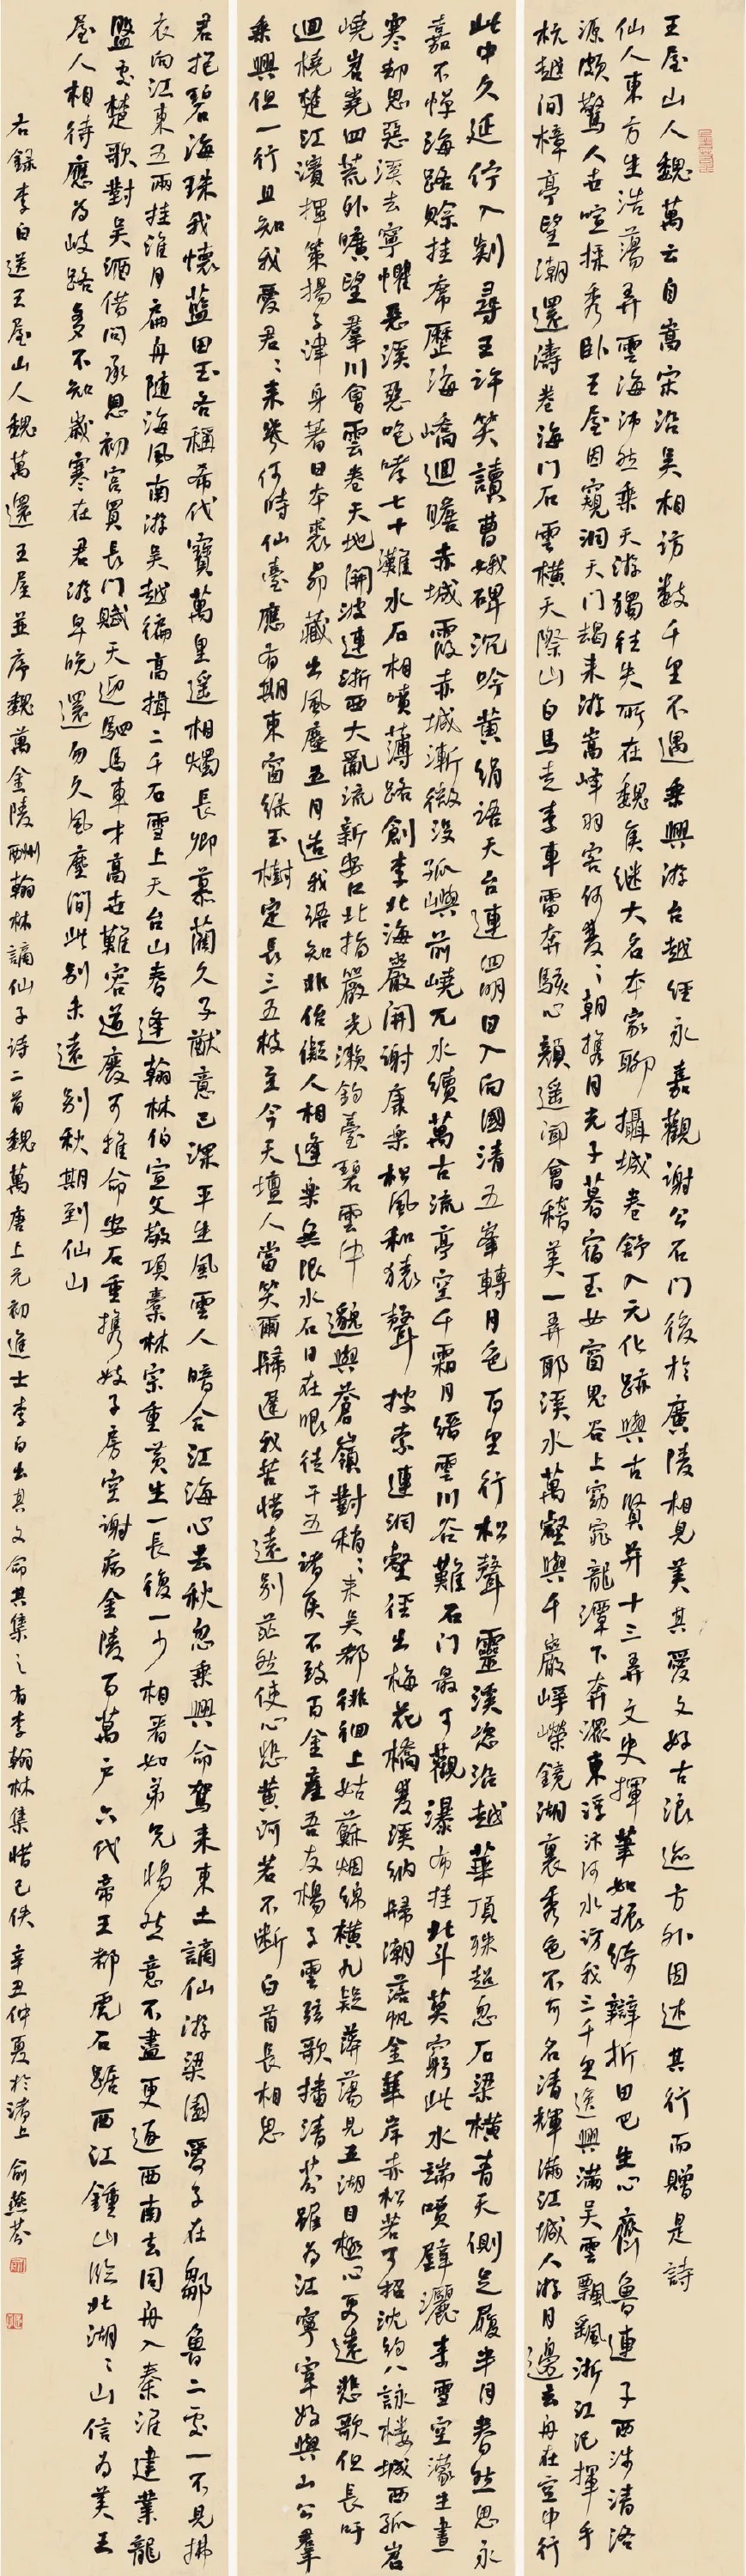 王屋山人魏萬云自嵩宋沿吳相訪數千里不遇乘興游台越經永嘉觀謝公石門後於廣陵相見美其愛文好古浪跡方外因述其行而贈是詩
仙人東方生浩蕩弄雲海沛然乘天游獨往失所在魏侯繼大名本家聊攝城卷舒入元化跡與古賢并十三弄文史揮筆如振綺辯折田巴生心齊魯連子西涉清洛
源頗驚人世喧採秀臥王屋因窺洞天門朅來游嵩峰羽客何雙〻朝攜月光子暮宿玉女窗鬼谷上窈窕龍潭下奔潨東浮汴河水訪我三千里逸興滿吳雲飄颻浙江汜揮手
杭越間樟亭望潮還濤卷海門石雲橫天際山白馬走素車雷奔駭心顏遙聞會稽美一弄耶溪水萬壑與千巖崢嶸鏡湖裏秀色不可名清輝滿江城人游月邊去舟在空中行
此中久延佇入剡尋王許笑讀曹娥碑沉吟黃絹語天台連四明日入向國清五峯轉月色百里行松聲靈溪恣沿越華頂殊超忽石梁橫青天側足履半月眷然思永
嘉不憚海路賒挂席歷海嶠迴瞻赤城霞赤城漸微沒孤嶼前嶢兀水續萬古流亭空千霜月縉雲川谷難石門最可觀瀑布挂北斗莫窮此水端噴壁灑素雪空濛生晝
寒却思惡溪去寧懼惡溪惡咆哮七十灘水石相噴薄路創李北海巖開謝康樂松風和猿聲搜索連洞壑徑出梅花橋雙溪納歸潮落帆金華岸赤松若可招沈約八詠樓城西孤岧
嶢岧嶤四荒外曠望羣川會雲卷天地開波連浙西大亂流新安口北指嚴光瀨釣臺碧雲中邈與蒼嶺對稍〻來吳都徘徊上姑蘇烟綿橫九疑漭蕩見五湖目極心更遠悲歌但長吁
迴橈楚江濱揮策揚子津身著日本裘昂藏出風塵五月造我語知非佁儗人相逢樂無限水石日在眼徒干五諸侯不致百金產吾友楊子雲弦歌播清芬雖為江寧宰好與山公羣
乘興但一行且知我愛君〻來幾何時仙臺應有期東窗綠玉樹定長三五枝至今天壇人當笑爾歸遲我苦惜遠別茫然使心悲黃河若不斷白首長相思
君抱碧海珠我懷藍田玉各稱希代寶萬里遙相燭長卿慕藺久子猷意已深平生風雲人暗合江海心去秋忽乘興命駕來東土謫仙游梁園愛子在鄒魯二處一不見拂
衣向江東五兩挂淮月扁舟隨海風南游吳越徧高揖二千石雪上天台山春逢翰林伯宣父敬項橐林宗重黃生一長復一少相看如弟兄惕然意不盡更逐西南去同舟入秦淮建業龍
盤處楚歌對吳酒借問承恩初宮買長門賦天迎駟馬車才高世難容道廢可推命安石重攜妓子房空謝病金陵百萬戶六代帝王都虎石踞西江鍾山臨北湖〻山信為美王
屋人相待應為岐路多不知歲寒在君游早晚還勿久風塵間此別未遠別秋期到仙山
右錄李白送王屋山人魏萬還王屋並序魏萬金陵酬翰林謫仙子詩二首魏萬唐上元初進士李白出其文命其集之有李翰林集惜已佚辛丑仲夏於渚上俞燕芬